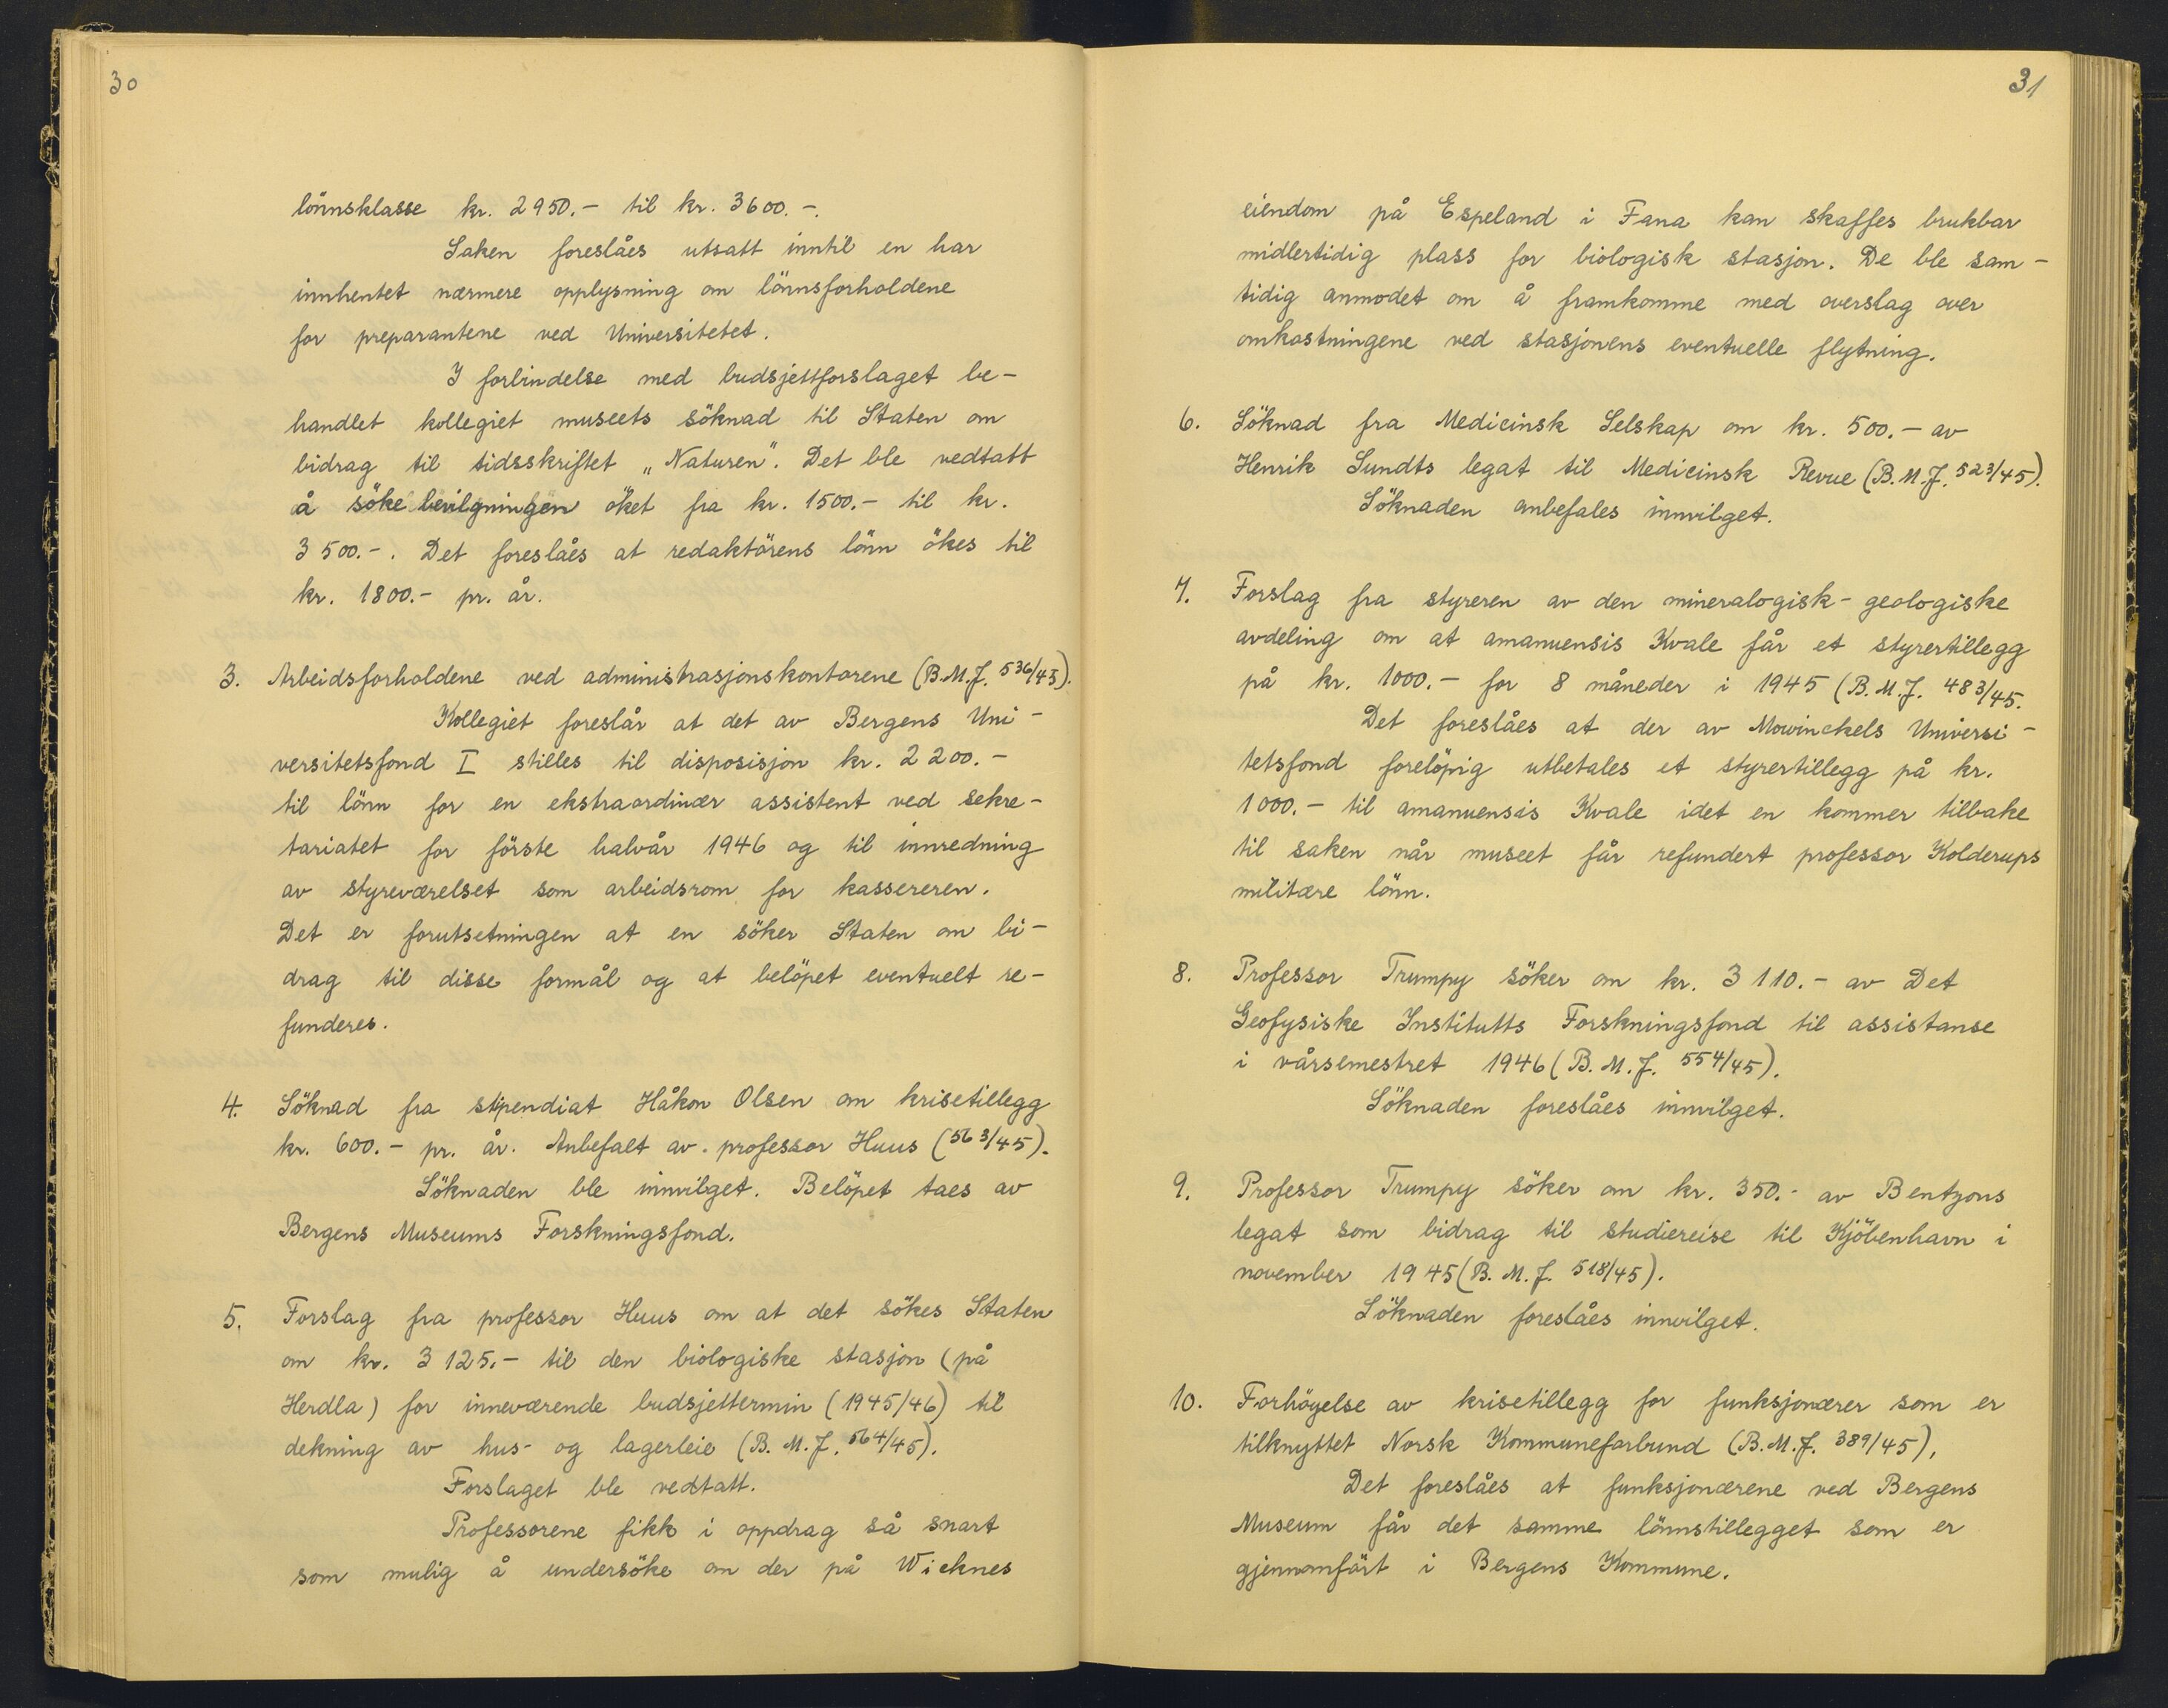 30
lönnsklasse kr. 2950.- til kr. 3600.-.
Saken foreslåes utsatt inntil en har
innhentet nærmere opplysning om lönnsforholdene
for preparantene ved Universitetet.
I forbindelse med budsjettforslaget be-
handlet kollegiet museets söknad til Staten om
bidrag til tidsskriftet „Naturen". Det ble vedtatt
å söke bevilgningen öket fra kr. 1500.- til kr.
3500.-. Det foreslåes at redaktörens lönn ökes til
kr. 1800.- pr. år.
3. Arbeidsforholdene ved administrasjonskontorene (B.M.J. 536/45).
Kollegiet foreslår at det av Bergens Uni-
versitetsfond I stilles til disposisjon kr. 2200.-
til lönn for en ekstraordinær assistent ved sekre-
tariatet for förste halvår 1946 og til innredning
av styreværelset som arbeidsrom for kassereren.
Det er forutsetningen at en söker Staten om bi-
drag til disse formål og at belöpet eventuelt re-
funderes.
4. Söknad fra stipendiat Håkon Olsen om krisetillegg
kr. 600.- pr. år. Anbefalt av professor Huus (563/45).
Söknaden ble innvilget. Belöpet taes av
Bergens Museums Forskningsfond.
5. Forslag fra professor Huus om at det sökes Staten
om kr. 3125.- til den biologiske stasjon (på
Herdla) for inneværende budsjettermin (1945/46) til
dekning av hus- og lagerleie (B.M.J. 564/45).
Forslaget ble vedtatt.
Professorene fikk i oppdrag så snart
som mulig å undersöke om der på Wicknes
31
eiendom på Espeland i Fana kan skaffes brukbar
midlertidig plass for biologisk stasjon. De ble sam-
tidig anmodet om å framkomme med overslag over
omkostningene ved stasjonens eventuelle flytning.
6. Söknad fra Medicinsk Selskap om kr. 500.- av
Henrik Sundts legat til Medicinsk Revue (B.M.J. 523/45).
Söknaden anbefales innvilget.
7. Forslag fra styreren av den mineralogisk-geologiske
avdeling om at amanuensis Kvale får et styrertillegg
på kr. 1000.- for 8 måneder i 1945 (B.M.J. 483/45.
Det foreslåes at der av Mowinckels Universi-
tetsfond forelöpig utbetales et styrertillegg på kr.
1000.- til amanuensis Kvale idet en kommer tilbake
til saken når museet får refundert professor Kolderups
militære lönn.
8. Professor Trumpy söker om kr. 3110.- av Det
Geofysiske Institutts Forskningsfond til assistanse
i vårsemestret 1946 (B.M.J. 554/45).
Söknaden foreslåes innvilget.
9. Professor Trumpy söker om kr. 350.- av Bentzons
legat som bidrag til studiereise til Kjöbenhavn i
november 1945 (B.M.J. 518/45).
Söknaden foreslåes innvilget.
10. Forhöyelse av krisetillegg for funksjonærer som er
tilknyttet Norsk Kommuneforbund (B.M.J. 389/45).
Det foreslåes at funksjonærene ved Bergens
Museum får det samme lönnstillegget som er
gjennomfört i Bergens Kommune.